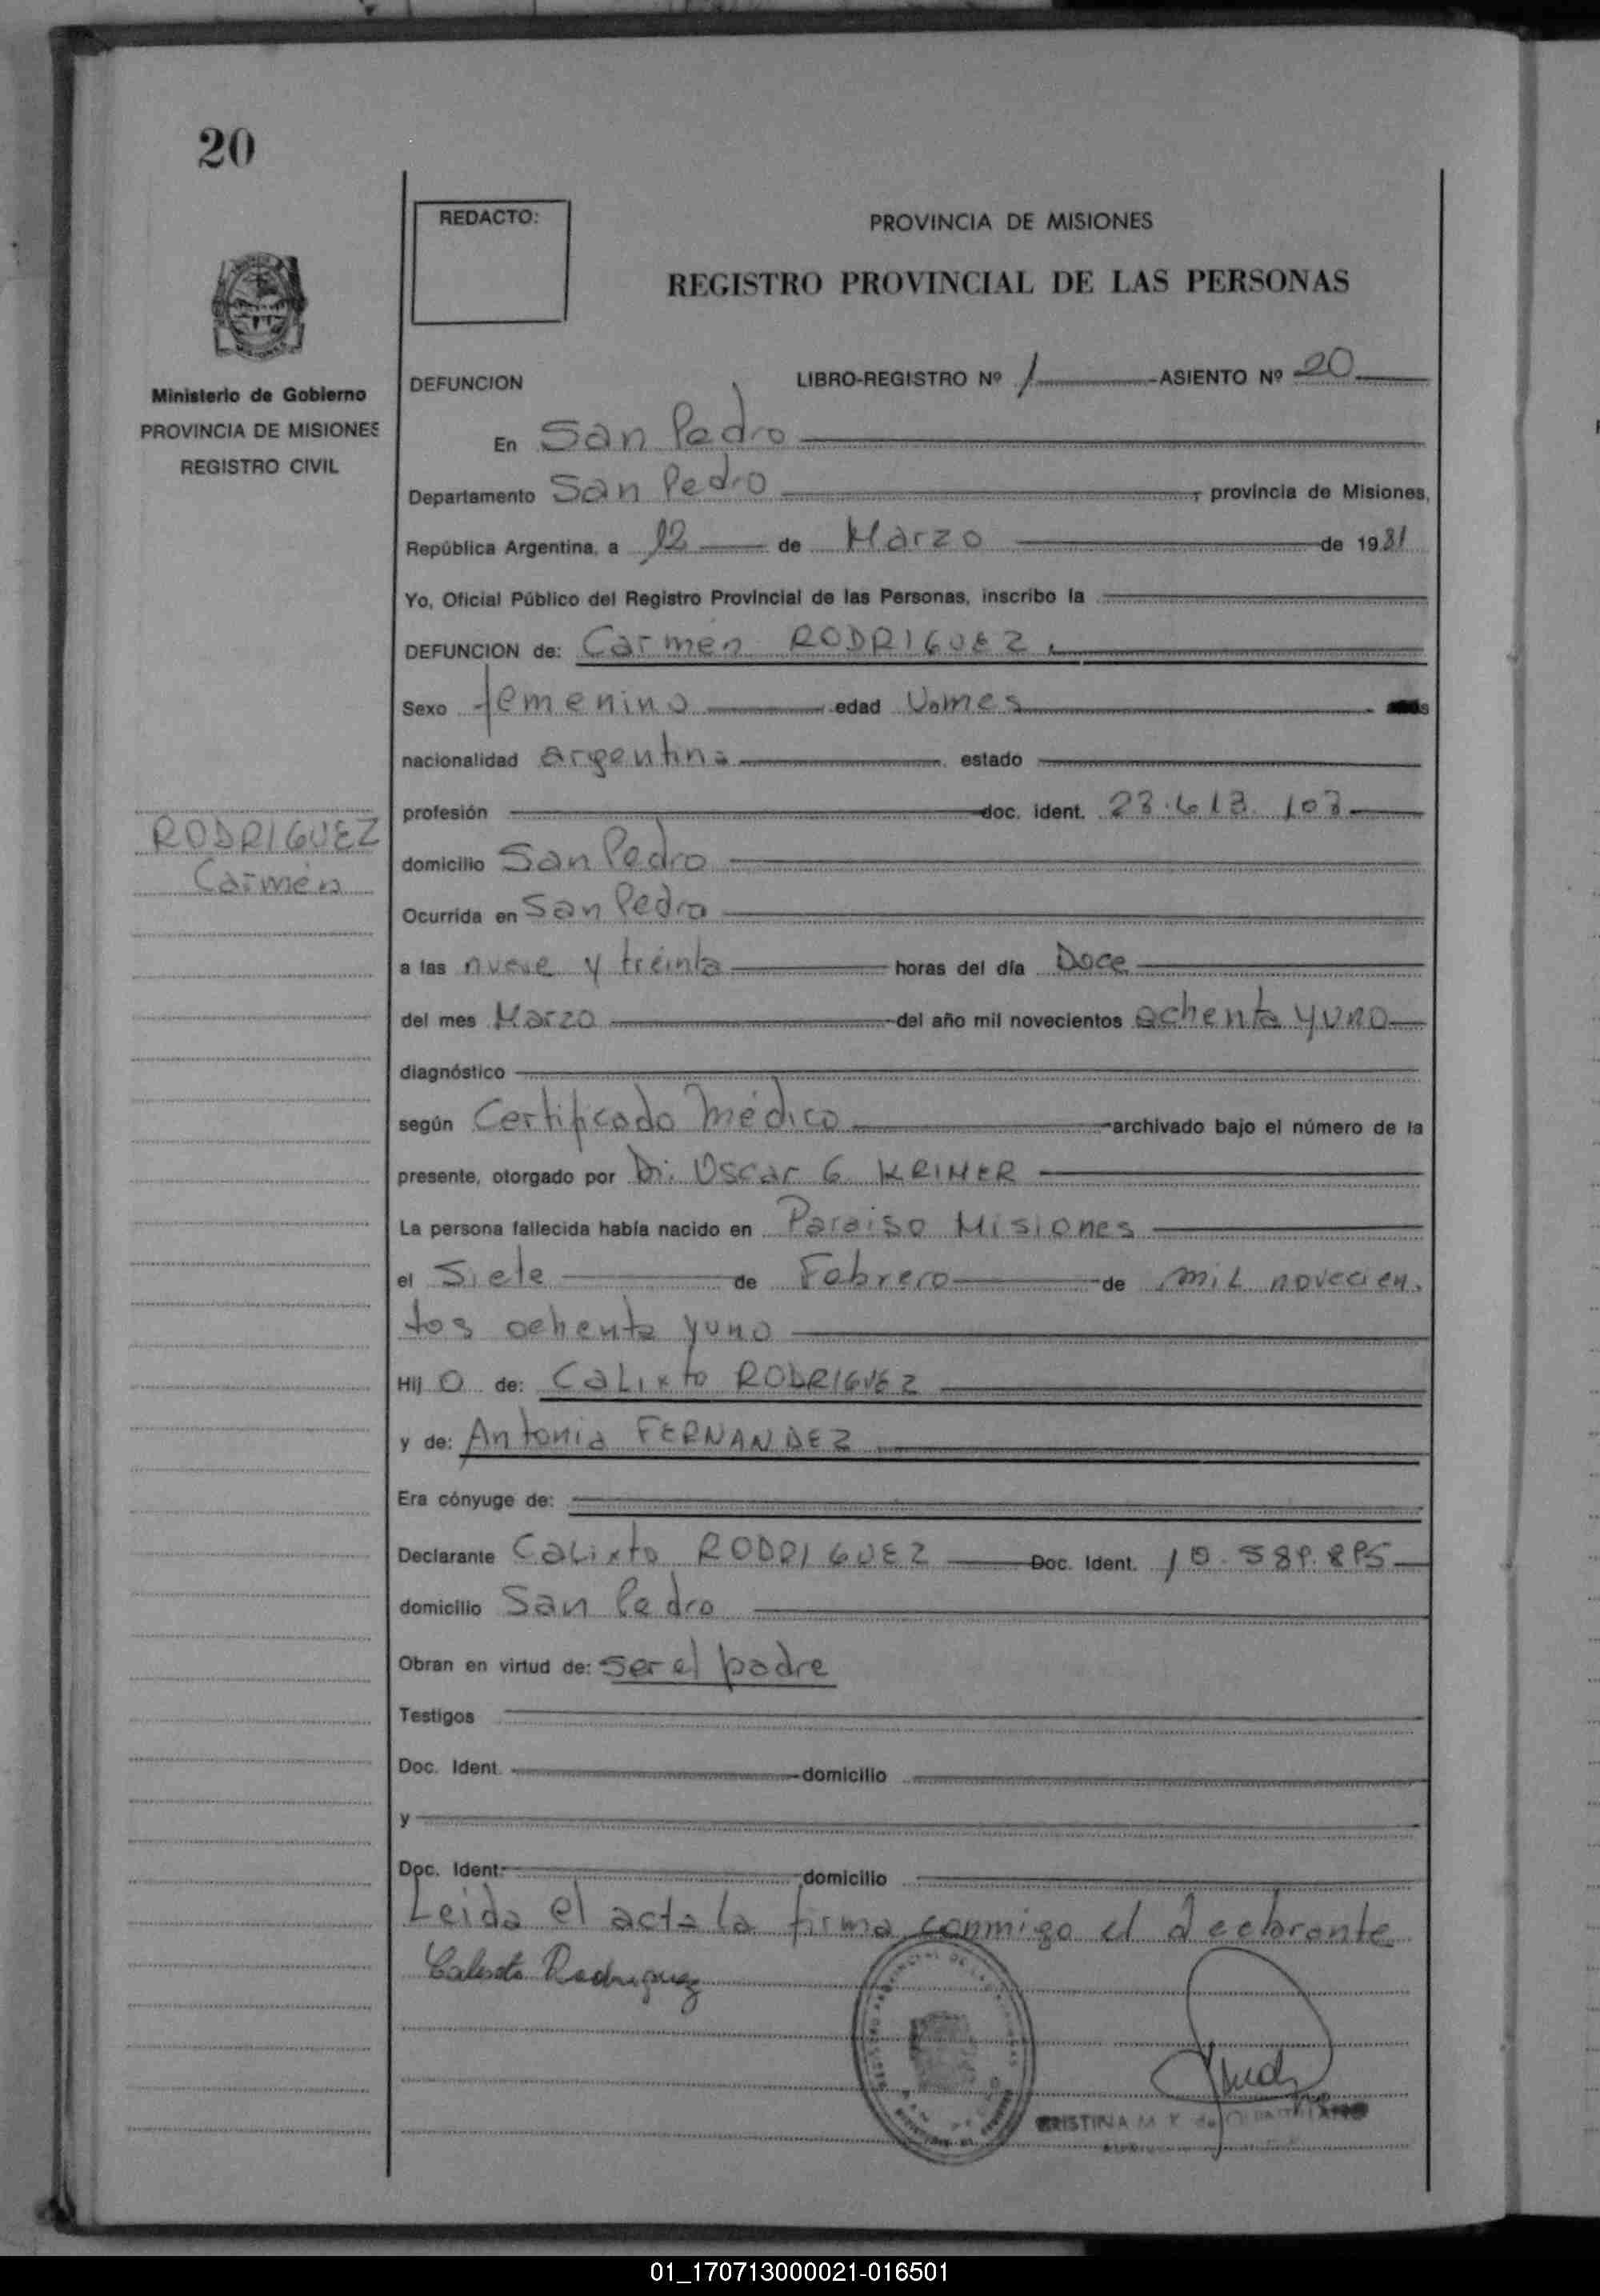 20
REDACTO:
PROVINCIA DE MISIONES
REGISTRO PROVINCIAL DE LAS PERSONAS
MISIONES
Ministerio de Gobierno
PROVINCIA DE MISIONES
REGISTRO CIVIL
DEFUNCION LIBRO-REGISTRO Nº 1 ASIENTO Nº 20
En San Pedro
Departamento San Pedro, provincia de Misiones,
República Argentina, a 12 de Marzo de 1981
Yo, Oficial Público del Registro Provincial de las Personas, inscribo la
DEFUNCION de: Carmen RODRIGUEZ
Sexo femenino edad Un mes
nacionalidad argentina estado
profesión doc. ident. 28.613.103
RODRIGUEZ
Carmen
domicilio San Pedro
Ocurrida en San Pedro
a las nueve y treinta horas del día Doce
del mes Marzo del año mil novecientos ochenta y uno
diagnóstico
según Certificado Médico archivado bajo el número de la
presente, otorgado por Dr. Oscar G KRIMER
La persona fallecida había nacido en Paraiso Misiones
el Siete de Febrero de mil novecien
tos ochenta y uno
Hij O de: Calixto RODRIGUEZ
y de: Antonia FERNANDEZ
Era cónyuge de:
Declarante Calixto RODRIGUEZ Doc. Ident. 10.589.895
domicilio San Pedro
Obran en virtud de: ser el padre
Testigos
Doc. Ident. domicilio
y
Doc. Ident. domicilio
Leida el acta la firma conmigo el declarante
Calixto Rodriguez
CRISTINA M. K. de
01_170713000021-016501